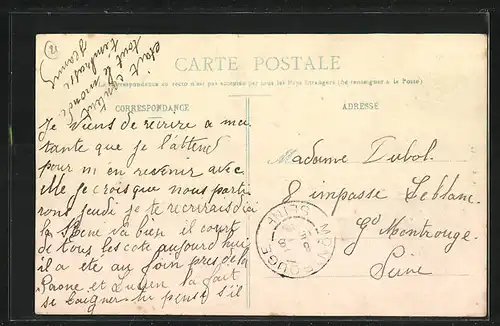 était content
tout le monde
t'embrasse
Jeanne
CARTE POSTALE
La Correspondance au recto n'est pas acceptée par tous les Pays Étrangers (Se renseigner à la Poste)
CORRESPONDANCE
ADRESSE
Je viens de récrire a ma
tante que je l'attend
pour m en revenir avec
elle je crois que nous parti
rons jeudi je te recrirais d'ici
la Rene va bien il court
de tous les cote aujourd'hui
il a été au foin pres de la
Saone et Lucien la fait
se baigner tu pense s'il
Madame Dubol.
8 impasse Leblanc
Gd Montrouge.
Seine
MONTROUGE
SEINE